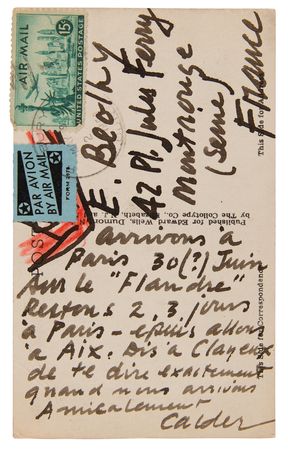 AIR MAIL
15¢
UNITED STATES POSTAGE
PAR AVION
BY AIR MAIL
FORM 2978
POST
E. Beothy
42 Pl. Jules Ferry
Montrouge
(Seine)
France
This Side for Address
Published for Edward Wells, Dumont
by The Collotype Co., Elizabeth, N.J. and
This Side for Correspondence
arrivons à
Paris 30(?) Juin
sur le "Flandre"
Restons 2, 3, jours
à Paris - epuis allons
à Aix. Dis à Clayeux
de te dire exactement
quand nous arrivons
Amicalement
Calder